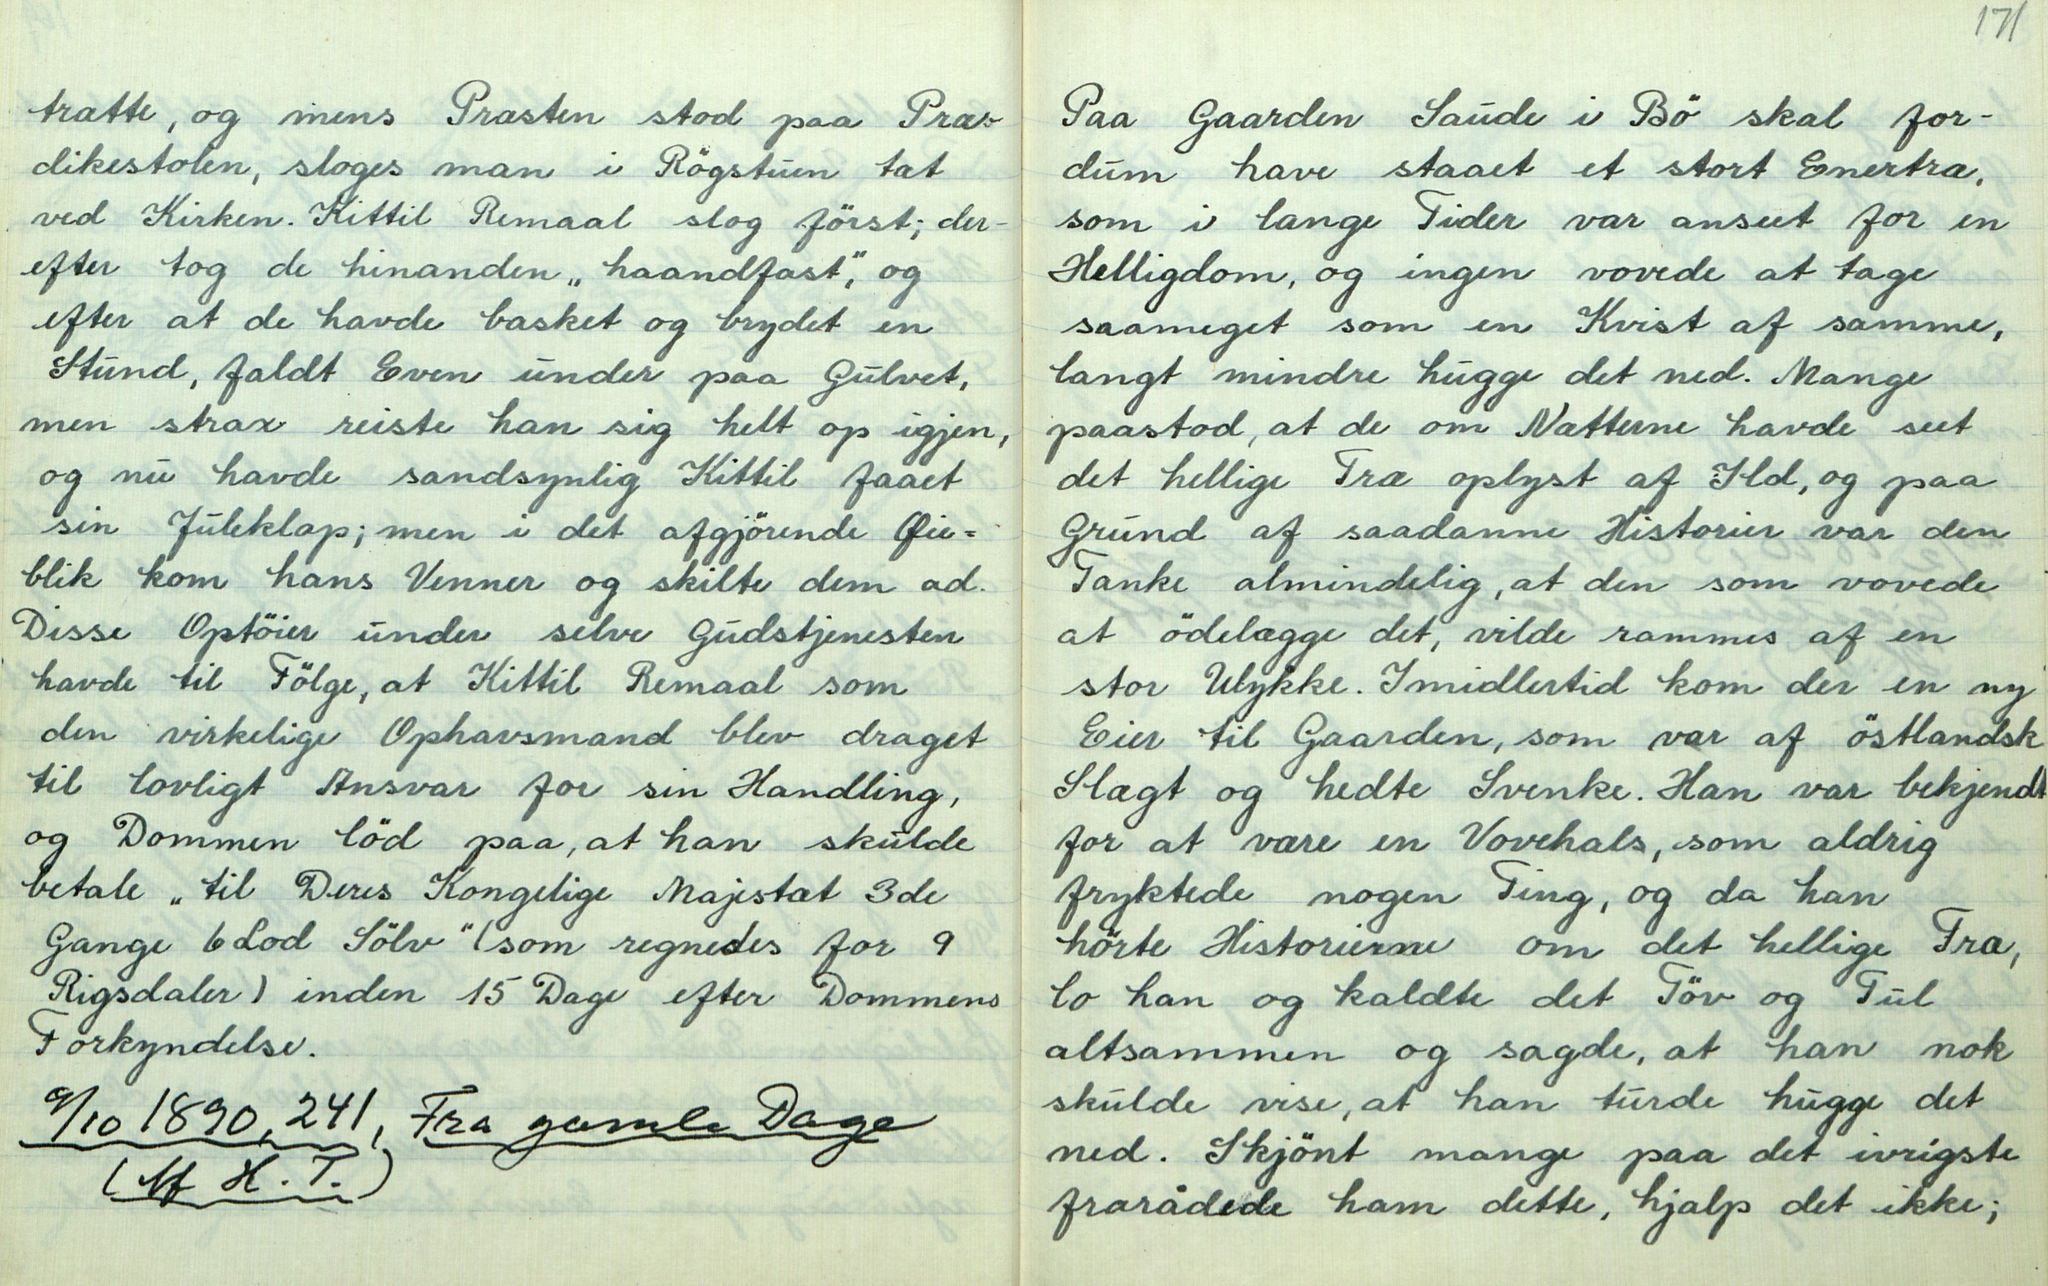 trætte, og mens Præsten stod paa Præ-
dikestolen, sloges man i Rögstuen tæt
ved Kirken. Kittil Remaal slog först; der-
efter tog de hinanden „haandfast“, og
efter at de havde basket og brydet en
Stund, faldt Even under paa Gulvet,
men strax reiste han sig helt op igjen,
og nu havde sandsynlig Kittil faaet
sin Juleklap; men i det afgjörende Øie=
blik kom hans Venner og skilte dem ad.
Disse Optöier under selve Gudstjenesten
havde til Fölge, at Kittil Remaal som
den virkelige Ophavsmand blev draget
til lovligt Ansvar for sin Handling,
og Dommen löd paa, at han skulde
betale „til Deres Kongelige Majestæt 3de
Gange 6 Lod Sölv“ (som regnedes for 9
Rigsdaler) inden 15 Dage efter Dommens
Forkyndelse.
9/10 1890, 241, Fra gamle Dage
(Af H. T.)
171
Paa Gaarden Saude i Bö skal for-
dum have staaet et stort Enertræ,
som i lange Tider var anseet for en
Helligdom, og ingen vovede at tage
saameget som en Kvist af samme,
langt mindre hugge det ned. Mange
paastod, at de om Nætterne havde seet
det hellige Træ oplyst af Ild, og paa
Grund af saadanne Historier var den
Tanke almindelig, at den som vovede
at ödelægge det, vilde rammes af en
stor Ulykke. Imidlertid kom der en ny
Eier til Gaarden, som var af östlandsk
Slægt og hedte Svenke. Han var bekjendt
for at være en Vovehals, som aldrig
fryktede nogen Ting, og da han
hörte Historierne om det hellige Træ,
lo han og kaldte det Töv og Tul
altsammen og sagde, at han nok
skulde vise, at han turde hugge det
ned. Skjönt mange paa det ivrigste
frarådede ham dette, hjalp det ikke;